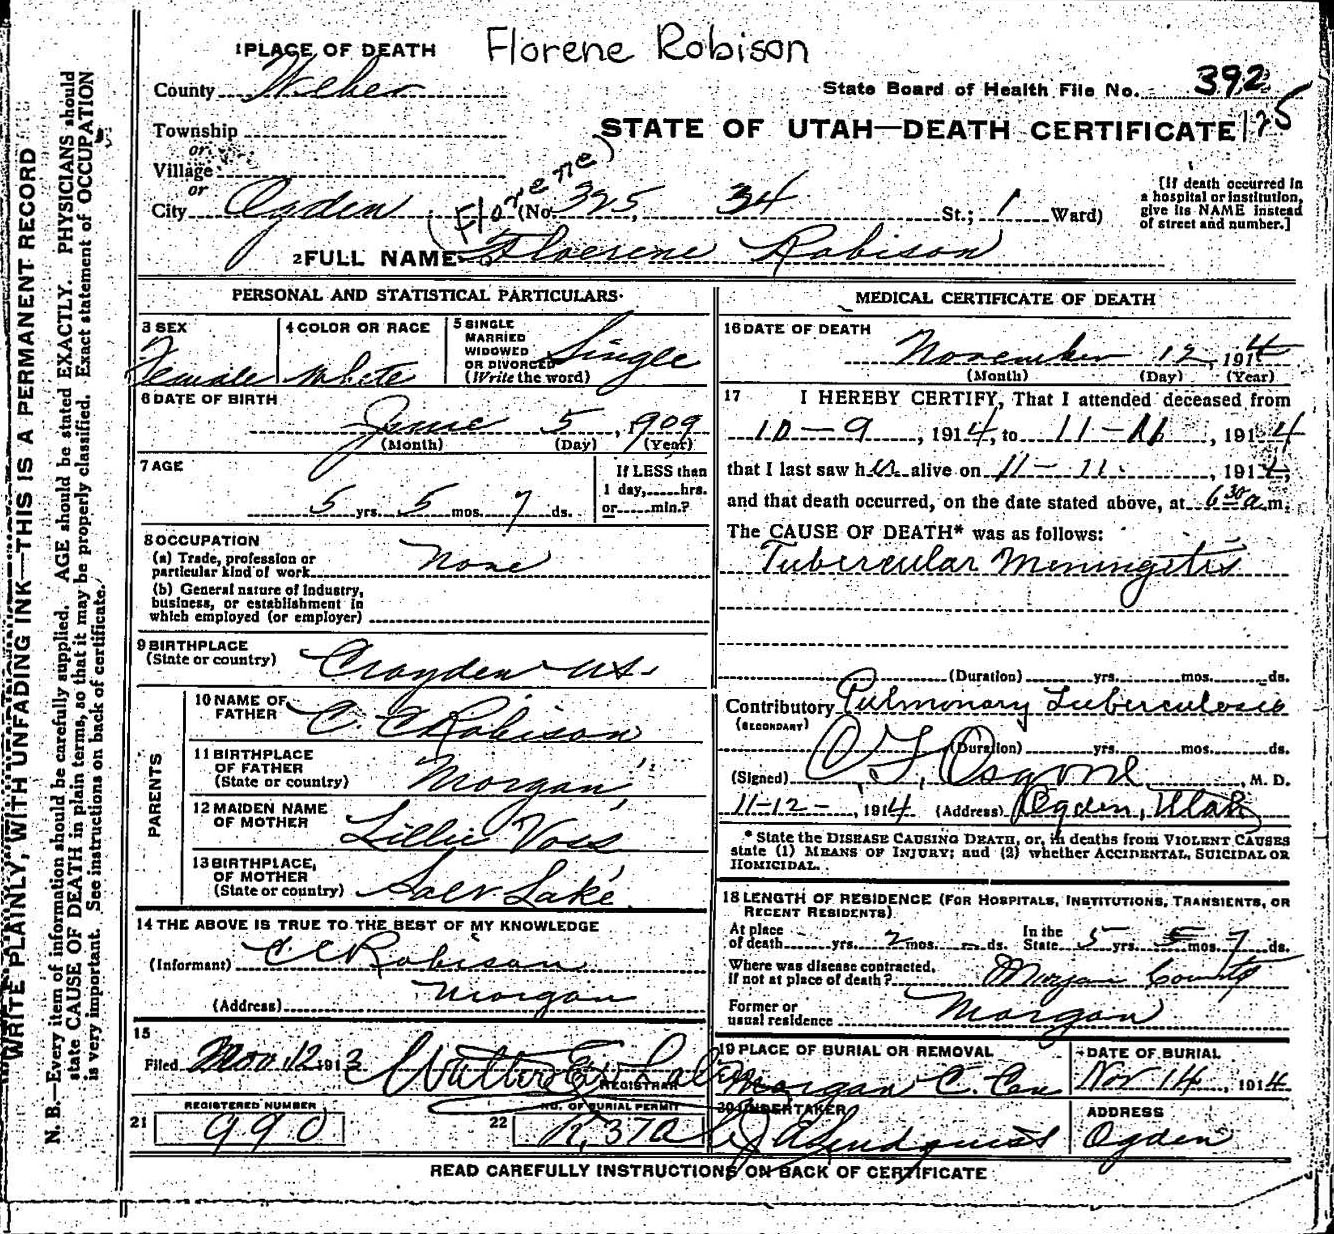 Florene Robison
1 PLACE OF DEATH
County Weber
State Board of Health File No. 392
STATE OF UTAH—DEATH CERTIFICATE 125
Township
or
Village
or
City Ogden (No. 325, 34 St.; 1 Ward)
[If death occurred in
a hospital or institution,
give its NAME instead
of street and number.]
(Florene)
2 FULL NAME Floerene Robison
PERSONAL AND STATISTICAL PARTICULARS
3 SEX
Female
4 COLOR OR RACE
White
5 SINGLE
MARRIED
WIDOWED
OR DIVORCED
(Write the word)
Single
6 DATE OF BIRTH
June 5, 1909
(Month) (Day) (Year)
7 AGE
5 yrs. 5 mos. 7 ds.
If LESS than
1 day, hrs.
or min.?
8 OCCUPATION
(a) Trade, profession or
particular kind of work None
(b) General nature of industry,
business, or establishment in
which employed (or employer)
9 BIRTHPLACE
(State or country) Croyden
PARENTS
10 NAME OF
FATHER C. C. Robison
11 BIRTHPLACE
OF FATHER
(State or country) Morgan
12 MAIDEN NAME
OF MOTHER Lillie Voss
13 BIRTHPLACE,
OF MOTHER
(State or country) Salt Lake
14 THE ABOVE IS TRUE TO THE BEST OF MY KNOWLEDGE
(Informant) C C Robison
(Address) Morgan
15
Filed Nov 12 1913 Walter E.
REGISTRAR
REGISTERED NUMBER
21 990
NO. OF BURIAL PERMIT
22
MEDICAL CERTIFICATE OF DEATH
16 DATE OF DEATH
November 12, 1914
(Month) (Day) (Year)
17 I HEREBY CERTIFY, That I attended deceased from
10-9, 1914, to 11-11, 1914
that I last saw her alive on 11-11, 1914,
and that death occurred, on the date stated above, at 6 30 a.m.
The CAUSE OF DEATH* was as follows:
Tubercular Meningitis
(Duration) yrs. mos. ds.
Contributory Pulmonary Tuberculosis
(SECONDARY)
(Duration) yrs. mos. ds.
(Signed) M. D.
11-12-, 1914 (Address) Ogden, Utah
* State the DISEASE CAUSING DEATH, or, in deaths from VIOLENT CAUSES
state (1) MEANS OF INJURY; and (2) whether ACCIDENTAL, SUICIDAL OR
HOMICIDAL.
18 LENGTH OF RESIDENCE (FOR HOSPITALS, INSTITUTIONS, TRANSIENTS, OR
RECENT RESIDENTS)
At place
of death yrs. 2 mos. - ds.
In the
State 5 yrs. 5 mos. 7 ds.
Where was disease contracted,
if not at place of death? Morgan County
Former or
usual residence Morgan
19 PLACE OF BURIAL OR REMOVAL
Morgan C. Cem
DATE OF BURIAL
Nov 14, 1914
20 UNDERTAKER
Lindquist
ADDRESS
Ogden
READ CAREFULLY INSTRUCTIONS ON BACK OF CERTIFICATE
WRITE PLAINLY, WITH UNFADING INK—THIS IS A PERMANENT RECORD
N. B.—Every item of information should be carefully supplied. AGE should be stated EXACTLY. PHYSICIANS should
state CAUSE OF DEATH in plain terms, so that it may be properly classified. Exact statement of OCCUPATION
is very important. See instructions on back of certificate.